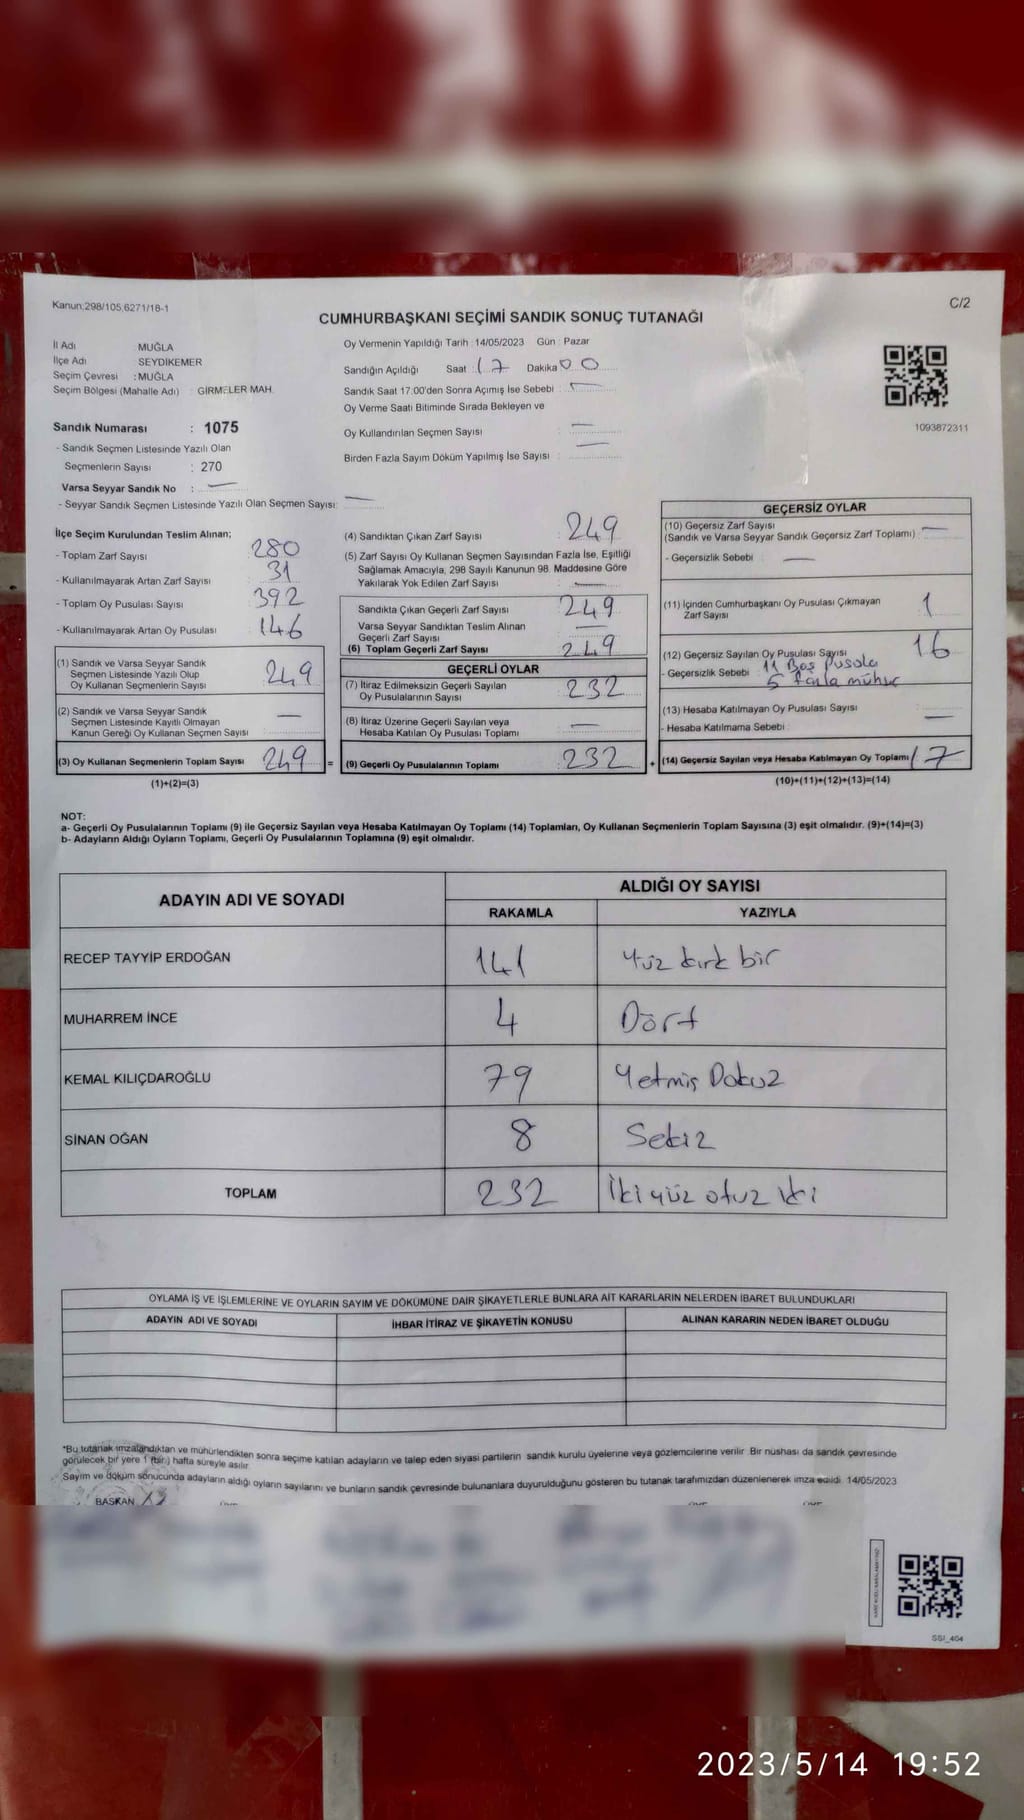 Kanun:298/105,6271/18-1
C/2
CUMHURBAŞKANI SEÇİMİ SANDIK SONUÇ TUTANAĞI
İl Adı MUĞLA
İlçe Adı : SEYDİKEMER
Seçim Çevresi : MUĞLA
Seçim Bölgesi (Mahalle Adı) : GİRMELER MAH.
Sandık Numarası : 1075
- Sandık Seçmen Listesinde Yazılı Olan
Seçmenlerin Sayısı : 270
Varsa Seyyar Sandık No : —
- Seyyar Sandık Seçmen Listesinde Yazılı Olan Seçmen Sayısı: —
Oy Vermenin Yapıldığı Tarih : 14/05/2023 Gün : Pazar
Sandığın Açıldığı Saat : 17 Dakika 00
Sandık Saat 17.00'den Sonra Açımış İse Sebebi : —
Oy Verme Saati Bitiminde Sırada Bekleyen ve
Oy Kullandırılan Seçmen Sayısı —
Birden Fazla Sayım Döküm Yapılmış İse Sayısı : —
1093872311
İlçe Seçim Kurulundan Teslim Alınan;
- Toplam Zarf Sayısı : 280
- Kullanılmayarak Artan Zarf Sayısı : 31
- Toplam Oy Pusulası Sayısı : 392
- Kullanılmayarak Artan Oy Pusulası : 146
(1) Sandık ve Varsa Seyyar Sandık
Seçmen Listesinde Yazılı Olup
Oy Kullanan Seçmenlerin Sayısı : 249
(2) Sandık ve Varsa Seyyar Sandık
Seçmen Listesinde Kayıtlı Olmayan
Kanun Gereği Oy Kullanan Seçmen Sayısı : —
(3) Oy Kullanan Seçmenlerin Toplam Sayısı 249 =
(1)+(2)=(3)
(4) Sandıktan Çıkan Zarf Sayısı : 249
(5) Zarf Sayısı Oy Kullanan Seçmen Sayısından Fazla İse, Eşitliği
Sağlamak Amacıyla, 298 Sayılı Kanunun 98. Maddesine Göre
Yakılarak Yok Edilen Zarf Sayısı : —
Sandıkta Çıkan Geçerli Zarf Sayısı : 249
Varsa Seyyar Sandıktan Teslim Alınan
Geçerli Zarf Sayısı : —
(6) Toplam Geçerli Zarf Sayısı : 249
GEÇERLİ OYLAR
(7) İtiraz Edilmeksizin Geçerli Sayılan
Oy Pusulalarının Sayısı : 232
(8) İtiraz Üzerine Geçerli Sayılan veya
Hesaba Katılan Oy Pusulası Toplamı : —
(9) Geçerli Oy Pusulalarının Toplamı : 232 +
GEÇERSİZ OYLAR
(10) Geçersiz Zarf Sayısı
(Sandık ve Varsa Seyyar Sandık Geçersiz Zarf Toplamı) : —
- Geçersizlik Sebebi : —
(11) İçinden Cumhurbaşkanı Oy Pusulası Çıkmayan
Zarf Sayısı : 1
(12) Geçersiz Sayılan Oy Pusulası Sayısı : 16
- Geçersizlik Sebebi : 11 Boş Pusula
5 fazla mühür
(13) Hesaba Katılmayan Oy Pusulası Sayısı : —
- Hesaba Katılmama Sebebi :
(14) Geçersiz Sayılan veya Hesaba Katılmayan Oy Toplamı 17
(10)+(11)+(12)+(13)=(14)
NOT:
a- Geçerli Oy Pusulalarının Toplamı (9) ile Geçersiz Sayılan veya Hesaba Katılmayan Oy Toplamı (14) Toplamları, Oy Kullanan Seçmenlerin Toplam Sayısına (3) eşit olmalıdır. (9)+(14)=(3)
b- Adayların Aldığı Oyların Toplamı, Geçerli Oy Pusulalarının Toplamına (9) eşit olmalıdır.
ADAYIN ADI VE SOYADI ALDIĞI OY SAYISI
RAKAMLA YAZIYLA
RECEP TAYYİP ERDOĞAN 141 Yüz kırk bir
MUHARREM İNCE 4 Dört
KEMAL KILIÇDAROĞLU 79 Yetmiş Dokuz
SİNAN OĞAN 8 Sekiz
TOPLAM 232 İki yüz otuz iki
OYLAMA İŞ VE İŞLEMLERİNE VE OYLARIN SAYIM VE DÖKÜMÜNE DAİR ŞİKAYETLERLE BUNLARA AİT KARARLARIN NELERDEN İBARET BULUNDUKLARI
ADAYIN ADI VE SOYADI İHBAR İTİRAZ VE ŞİKAYETİN KONUSU ALINAN KARARIN NEDEN İBARET OLDUĞU
*Bu tutanak imzalandıktan ve mühürlendikten sonra seçime katılan adayların ve talep eden siyasi partilerin sandık kurulu üyelerine veya gözlemcilerine verilir. Bir nüshası da sandık çevresinde
görülecek bir yere 1 (bir) hafta süreyle asılır.
Sayım ve döküm sonucunda adayların aldığı oyların sayılarını ve bunların sandık çevresinde bulunanlara duyurulduğunu gösteren bu tutanak tarafımızdan düzenlenerek imza edildi. 14/05/2023
BAŞKAN
SSI_404
2023/5/14 19:52